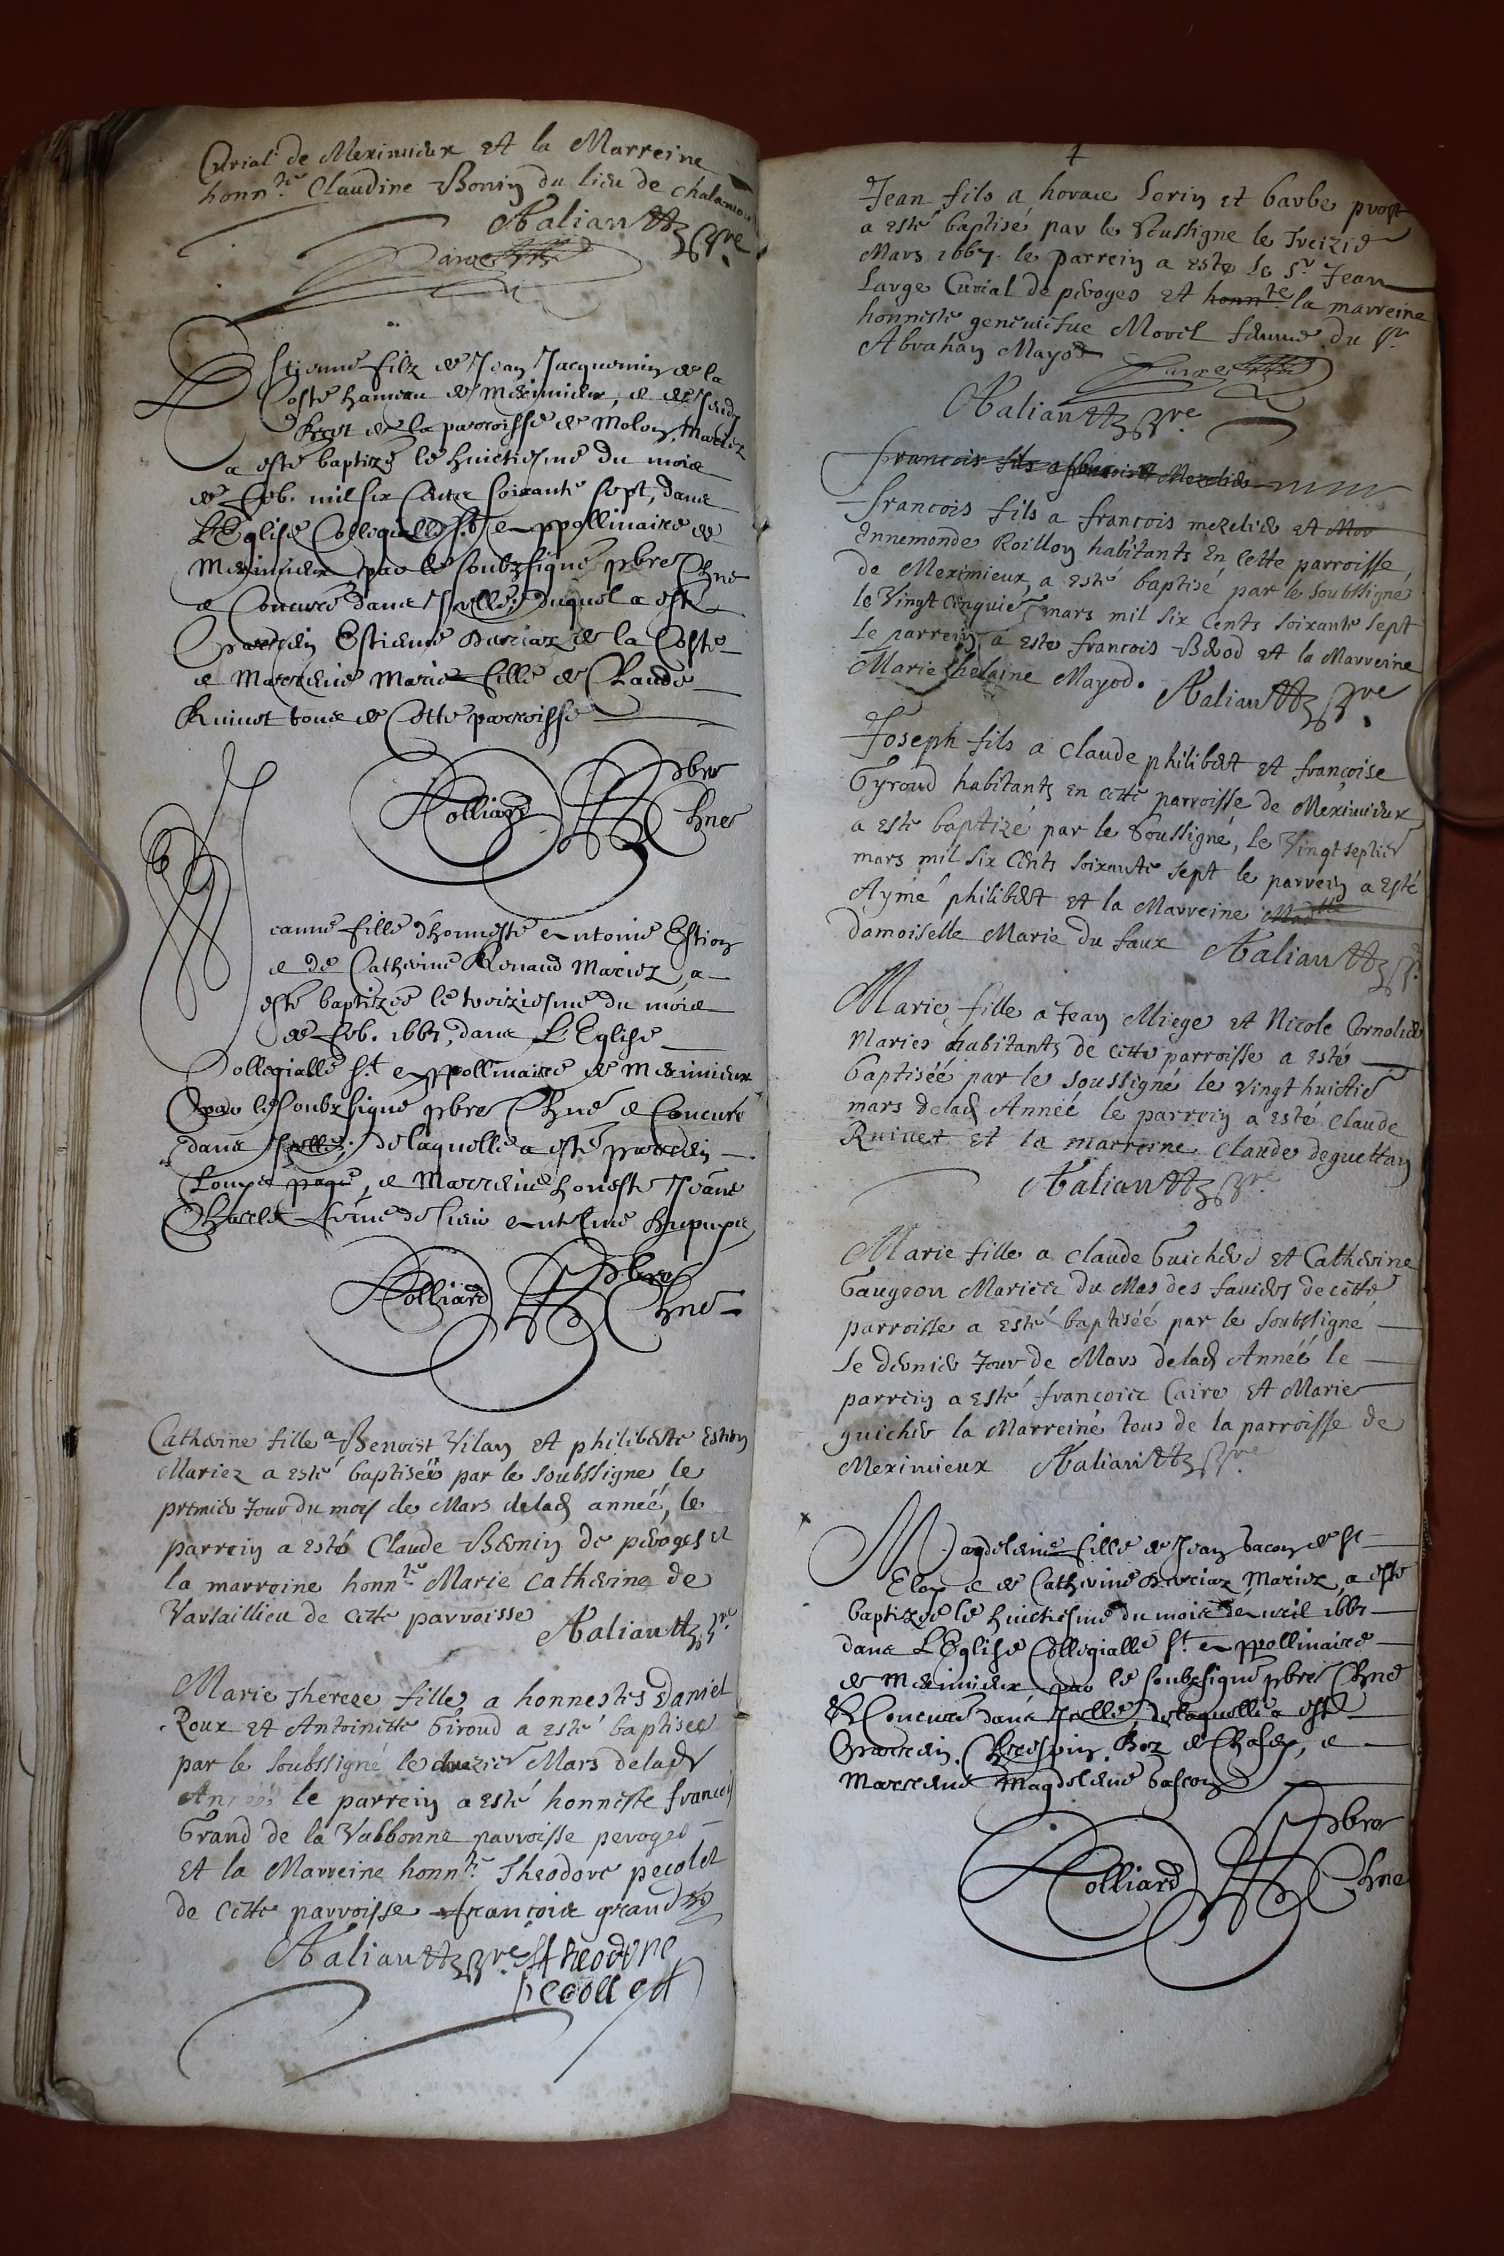 Curial de Meximieux et la Marreine
honn.te Claudine Bonin du lieu de chalamon
Aaliantz pbre
Estienne filz de Jean Jacquemin de la
Coste hameau de Meximieux, e de
de la parroisse de Molon, Mariez
a esté baptizé le huictiesme du mois
de feb. mil six Cents soixante sept, dans
L'Eglise Collegialle St. Appollinaire de
Meximieux par le soubzsigné pbre Chne
e Concuré dans Icelle, duquel a esté
parrein Estienne Darciaz de la Coste
e Marreine Marie fille de Claude
Ruivet tous de Cette parroisse
Rolliard pbre
Chne
Jeanne fille d'honneste Antoine Estion
e de Catherine Renaud Mariez, a
esté baptizée le treiziesme du mois
de feb. 1667, dans L'Eglise
Collegialle St. Appollinaire de Meximieux
par le soubzsigné pbre Chne e Concuré
dans Icelle; de laquelle a esté parrein
Louys page, e Marreine honeste Jeane
feme de sieur Antelme
Rolliard pbre
Chne
Catherine fille a Benoist Vilan et philiberte Estion
Mariez a esté baptisée par le soubssigne le
premier Jour du mois de Mars delad année, le
parrein a esté Claude Bernin de peroges et
la marreine honn.te Marie Catherine de
Varsaillieu de cette parroisse Aaliantz pre
Marie Therese fille a honnestes Daniel
Roux et Antoinette Giroud a esté baptisee
par le soubssigné le Mars delad
Année le parrein a esté honneste francois
Grand de la Valbonne parroisse peroges
et la Marreine honn.te Theodore pecolet
de cette parroisse francois grand
Aaliantz pre theodore
pecollet
4
Jean fils a horace Lorin et barbe prost
a esté baptisé par le soussigne le treizie
Mars 1667. le parrein a este le Sr Jean
Large Curial de peroges et honn.te la marreine
honneste geneviefue Morel femme du Sr
Abraham Mayod
Aaliantz pre
francois fils a francois Mezelier
francois fils a francois mezelier et Mor
Ennemonde Roillon habitants en cette parroisse
de Meximieux, a esté baptisé par le soubssigné
le Vingt cinquie mars mil six Cents soixante sept
Le parrein a esté francois Beod et la Marreine
Marie helaine Mayod. Aaliantz pre
Joseph fils a Claude philibert et françoise
Gyroud habitants en cette parroisse de Meximieux
a esté baptizé par le soussigné, le Vingt septie
mars mil six Cents soixante sept le parrein a esté
Aymé philibert et la Marreine Madlle
damoiselle Marie du faux Aaliantz p.
Marie fille a Jean Miege et Nicole Cornolier
Maries habitants de cette parroisse a esté
baptisée par le soussigné le vingt huictie
mars delad Année le parrein a esté Claude
Ruivet et la marreine Claude deguettan
Aaliantz pre
Marie fille a Claude Guicherd et Catherine
Gaugeon Mariees du Mas des faviers de cette
parroisse a esté baptisée par le soubssigné
Le dernier Jour de Mars delad Année le
parrein a esté francoise Caire et Marie
guicher la Marreine tous de la parroisse de
Meximieux Aaliantz pre
Magdeleine fille de Jean bacon de St
Eloy e de Catherine Darciaz Mariez, a esté
baptizée le huictiesme du mois de Avril 1667
dans L'Eglise Collegialle St. Appollinaire
de Meximieux par le soubzsigné pbre Chne
e Concuré dans Icelle, de laquelle a esté
parrein e
Marreine Magdeleine bascon
Rolliard pbre
Chne